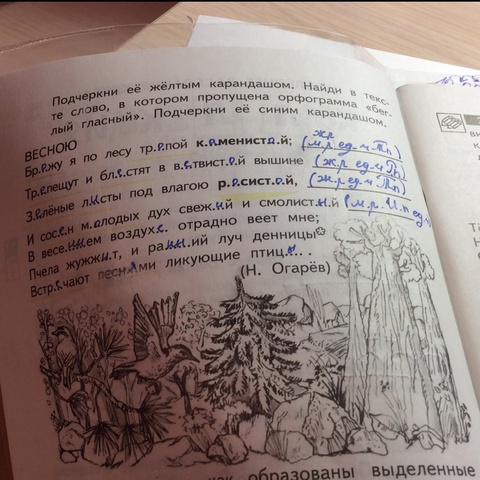 Подчеркни её жёлтым карандашом. Найди в текс-
те слово, в котором пропущена орфограмма «бег-
лый гласный». Подчеркни её синим карандашом.
ВЕСНОЮ
Брожу я по лесу тропой каменистой; (ж.р. ед.ч Т.п)
Трепещут и блестят в ветвистой вышине (ж.р ед.ч П.п)
Зелёные листы под влагою росистой, (ж.р. ед.ч Т.п)
И сосен молодых дух свежий и смолистый (м.р. И.п ед
В весеннем воздухе отрадно веет мне;
Пчела жужжит, и ранний луч денницы
Встречают песнями ликующие птицы.
(Н. Огарёв)
как образованы выделенные